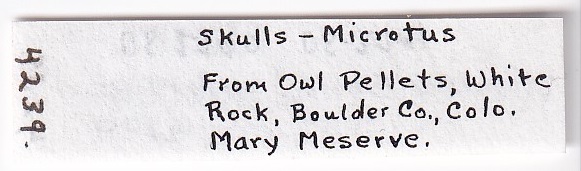 4239.
Skulls – Microtus
From Owl Pellets, White
Rock, Boulder Co., Colo.
Mary Meserve.